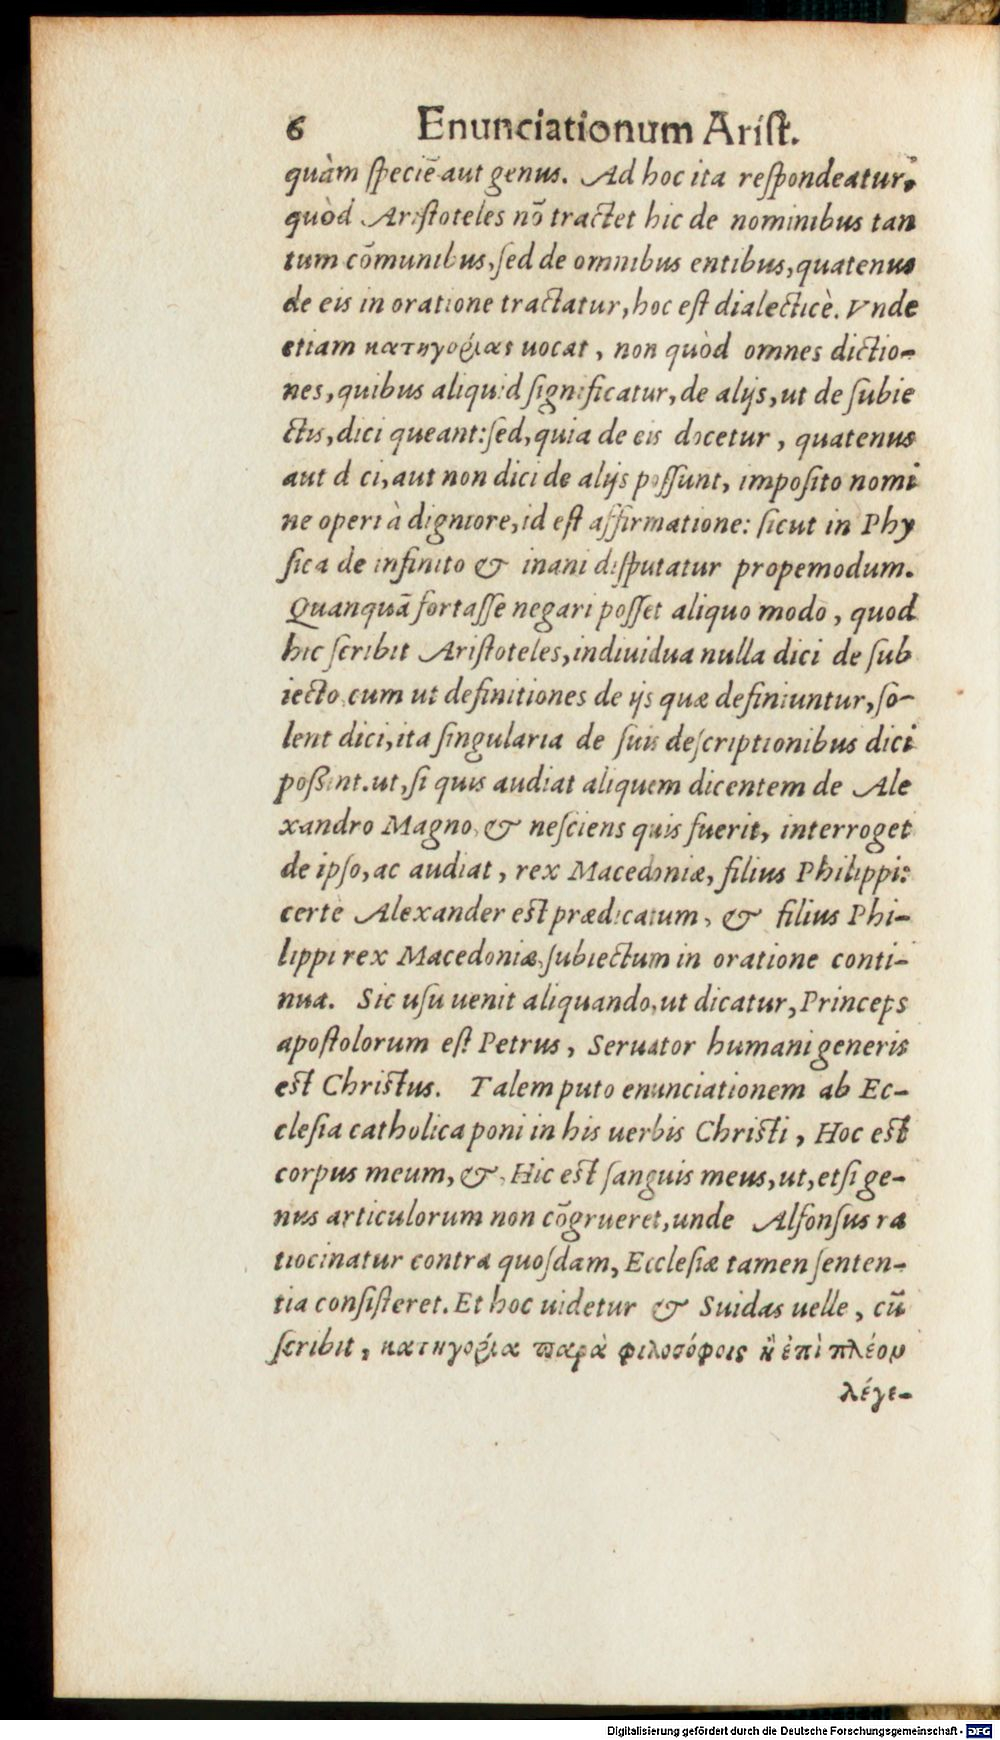 6 Enunciationum Arist.
quàm speciẽ aut genus. Ad hoc ita respondeatur:
quòd Aristoteles nõ tractet hic de nominibus tan
tum cõmunibus, sed de omnibus entibus, quatenus
de eis in oratione tractatur, hoc est dialecticè. Vnde
etiam κατηγορίας uocat, non quòd omnes dictio-
nes, quibus aliquid significatur, de alijs, ut de subie
ctis, dici queant: sed, quia de eis docetur, quatenus
aut dici, aut non dici de alijs possunt, imposito nomi
ne operi à digniore, id est affirmatione: sicut in Phy
sica de infinito & inani disputatur propemodum.
Quanquã fortasse negari posset aliquo modo, quod
hic scribit Aristoteles, indiuidua nulla dici de sub
iecto, cum ut definitiones de ijs quæ definiuntur, so-
lent dici, ita singularia de suis descriptionibus dici
poßint. ut, si quis audiat aliquem dicentem de Ale
xandro Magno, & nesciens quis fuerit, interroget
de ipso, ac audiat, rex Macedoniæ, filius Philippi:
certè Alexander est prædicatum, & filius Phi-
lippi rex Macedoniæ, subiectum in oratione conti-
nua. Sic usu uenit aliquando, ut dicatur, Princeps
apostolorum est Petrus, Seruator humani generis
est Christus. Talem puto enunciationem ab Ec-
clesia catholica poni in his uerbis Christi, Hoc est
corpus meum, &, Hic est sanguis meus, ut, etsi ge-
nus articulorum non cõgrueret, unde Alfonsus ra
tiocinatur contra quosdam, Ecclesiæ tamen senten-
tia consisteret. Et hoc uidetur & Suidas uelle, cũ
scribit, κατηγορία παρὰ φιλοσόφοις ἡ ἐπὶ πλέον
λέγε-
Digitalisierung gefördert durch die Deutsche Forschungsgemeinschaft - DFG